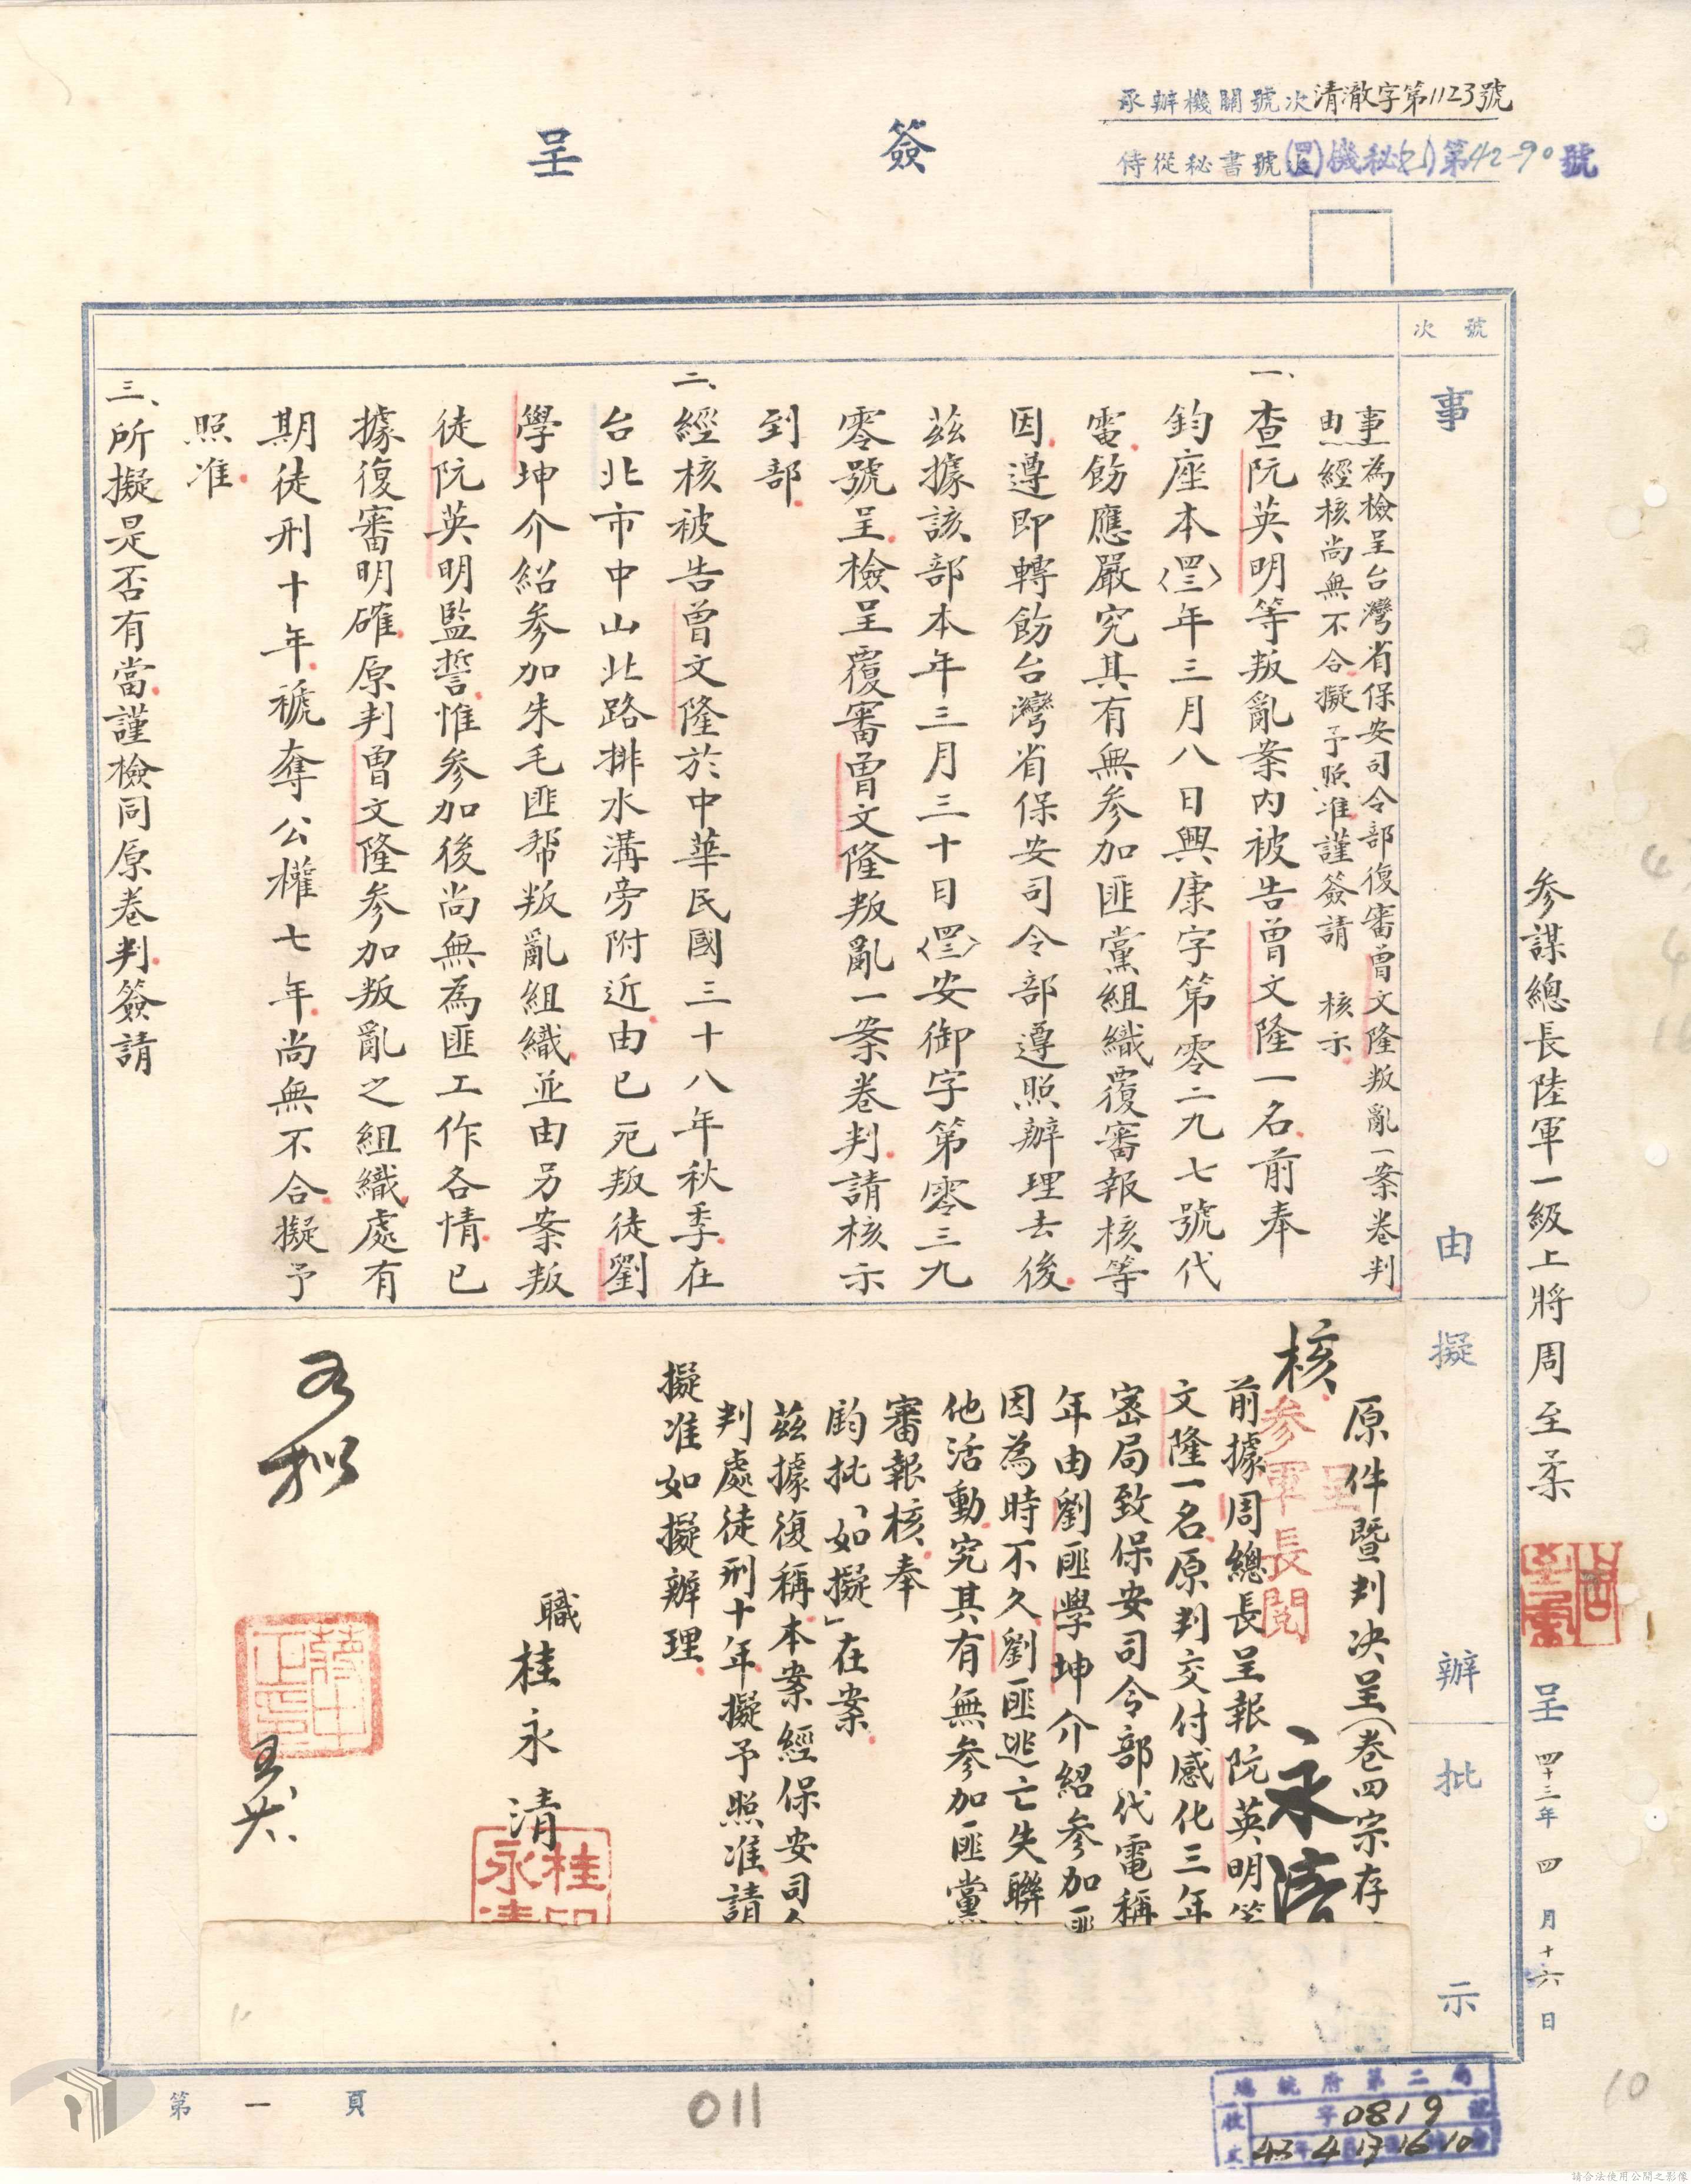 承辦機關號次清澈字第1123號
侍從秘書號次(四三)機秘(乙)第42-90號
簽呈
號次
事由
擬辦
批示
事由 為檢呈台灣省保安司令部復審曾文隆叛亂一案卷判
經核尚無不合擬予照准謹簽請 核示
一、查阮英明等叛亂案內被告曾文隆一名前奉
鈞座本(四三)年三月八日興康字第零二九七號代
電飭應嚴究其有無參加匪黨組織覆審報核等
因遵即轉飭台灣省保安司令部遵照辦理去後
茲據該部本年三月三十日(四三)安御字第零三九
零號呈檢呈覆審曾文隆叛亂一案卷判請核示
到部
二、經核被告曾文隆於中華民國三十八年秋季在
台北市中山北路排水溝旁附近由已死叛徒劉
學坤介紹參加朱毛匪幫叛亂組織並由另案叛
徒阮英明監誓惟參加後尚無為匪工作各情已
據復審明確原判曾文隆參加叛亂之組織處有
期徒刑十年褫奪公權七年尚無不合擬予
照准
三、所擬是否有當謹檢同原卷判簽請
核
原件暨判決呈(卷四宗存
呈
參軍長閱
永清
前據周總長呈報阮英明等
文隆一名原判交付感化三年
密局致保安司令部代電稱
年由劉匪學坤介紹參加匪
因為時不久劉匪逃亡失聯
他活動究其有無參加匪黨
審報核奉
鈞批「如擬」在案
茲據復稱本案經保安司令
判處徒刑十年擬予照准請
擬准如擬辦理
職桂永清
桂永清印
如擬
蔣中正印
參謀總長陸軍一級上將周至柔
呈 四十三年 四 月 十六 日
總統府第二局
收文 字0819號
43年4 17 16 10
第一頁
011
10
請合法使用公開之影像